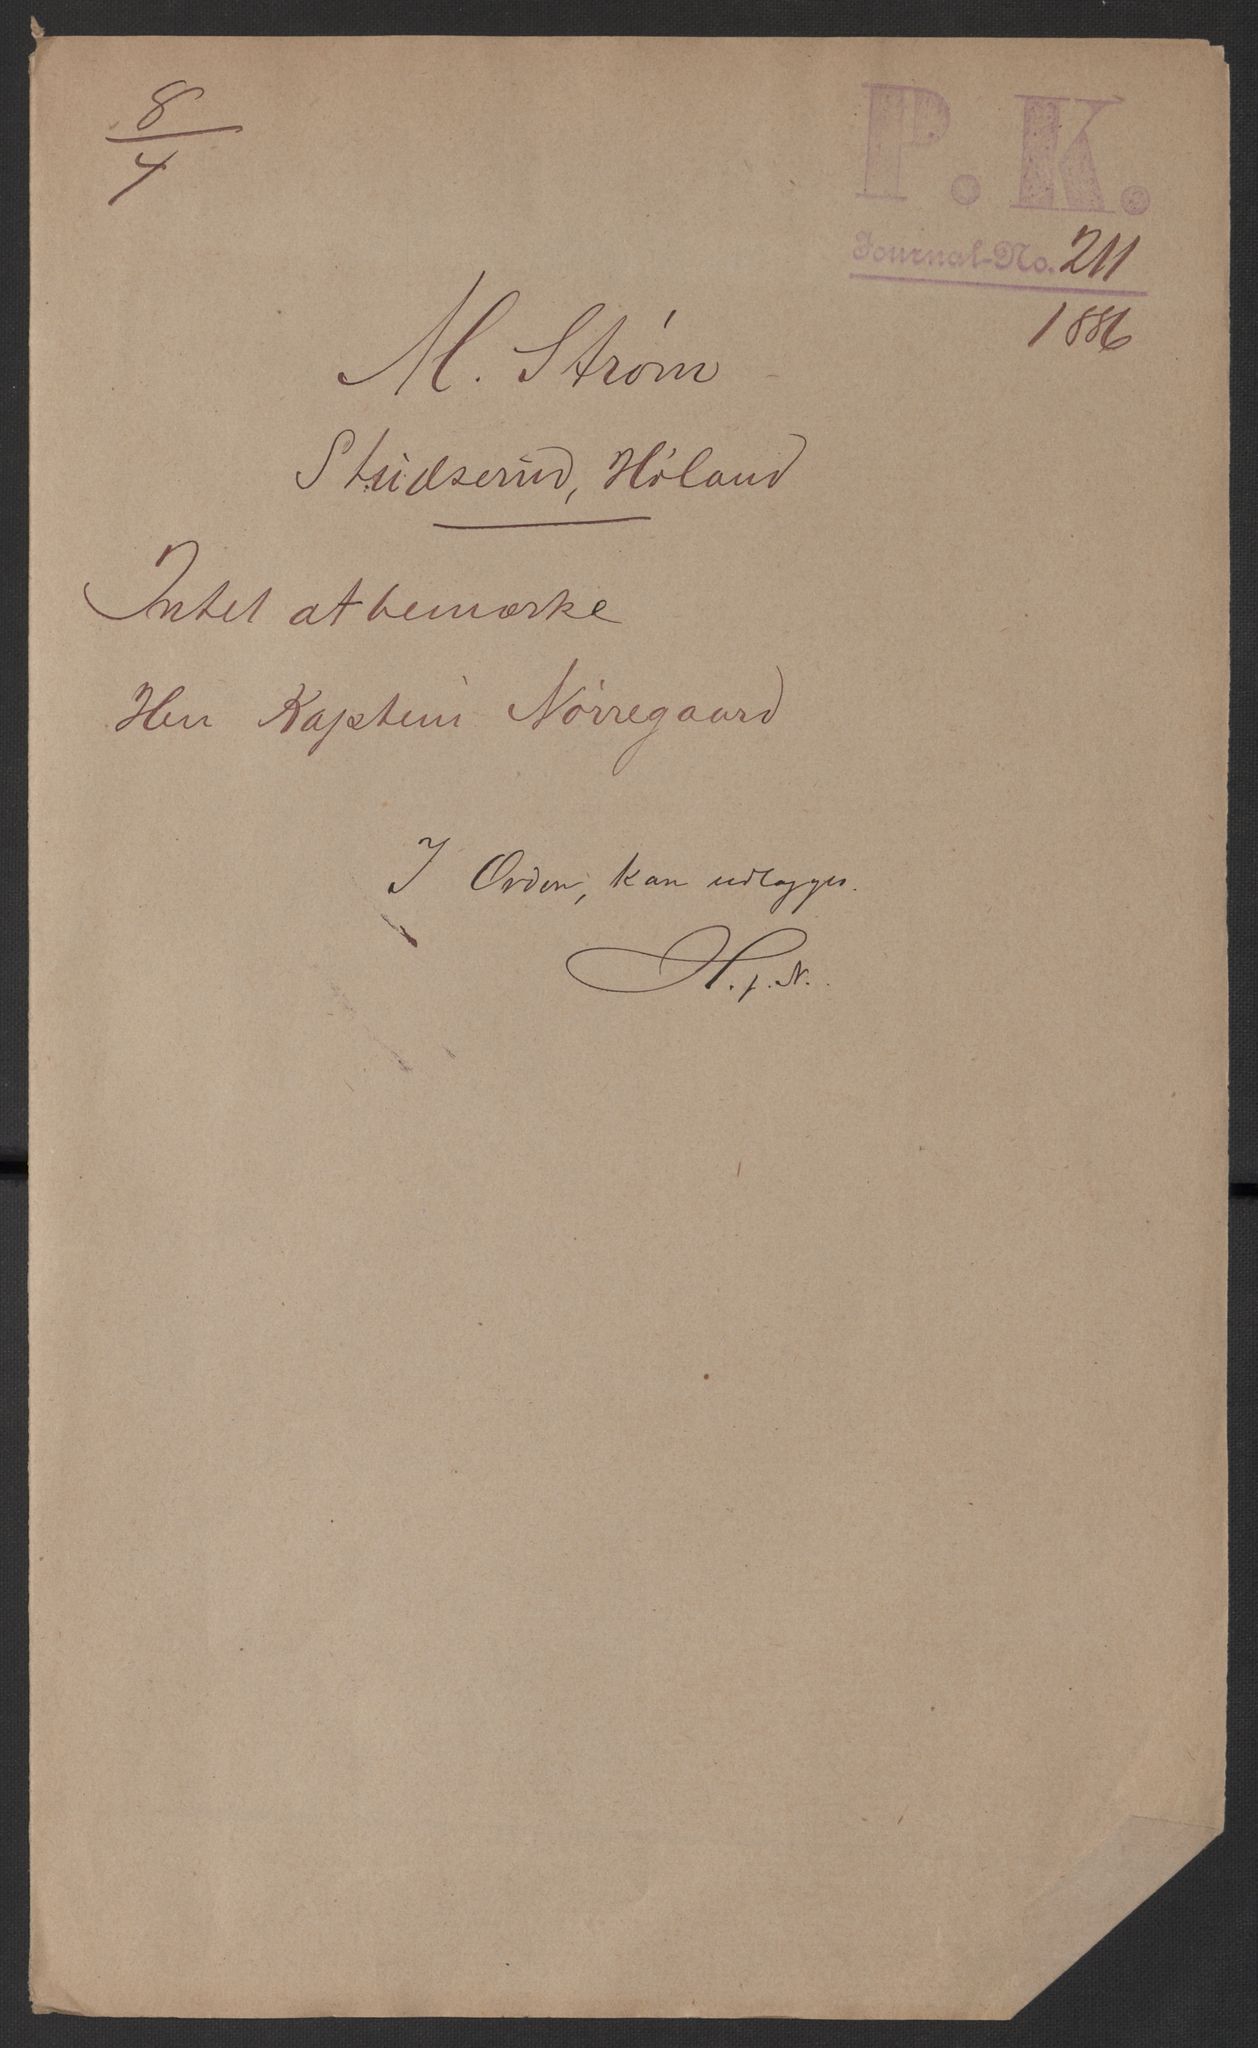 8/4
P. K.
Journal-No. 211
1886
M. Strøm
Studserud, Høland
Intet at bemærke
Herr Kaptein Nørregaard
I Orden, kan udlægges.
H. f. N.